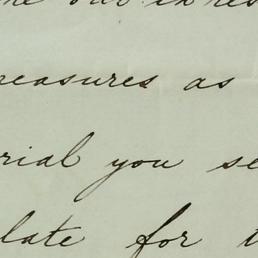 reasures as
rial you se
late for t